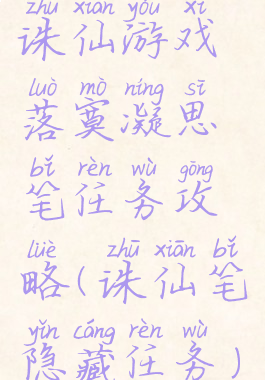 zhū xiān yóu xì
诛仙游戏
luò mò níng sī
落寞凝思
bǐ rèn wù gōng
笔任务攻
lüè zhū xiān bǐ
略(诛仙笔
yǐn cáng rèn wù
隐藏任务)